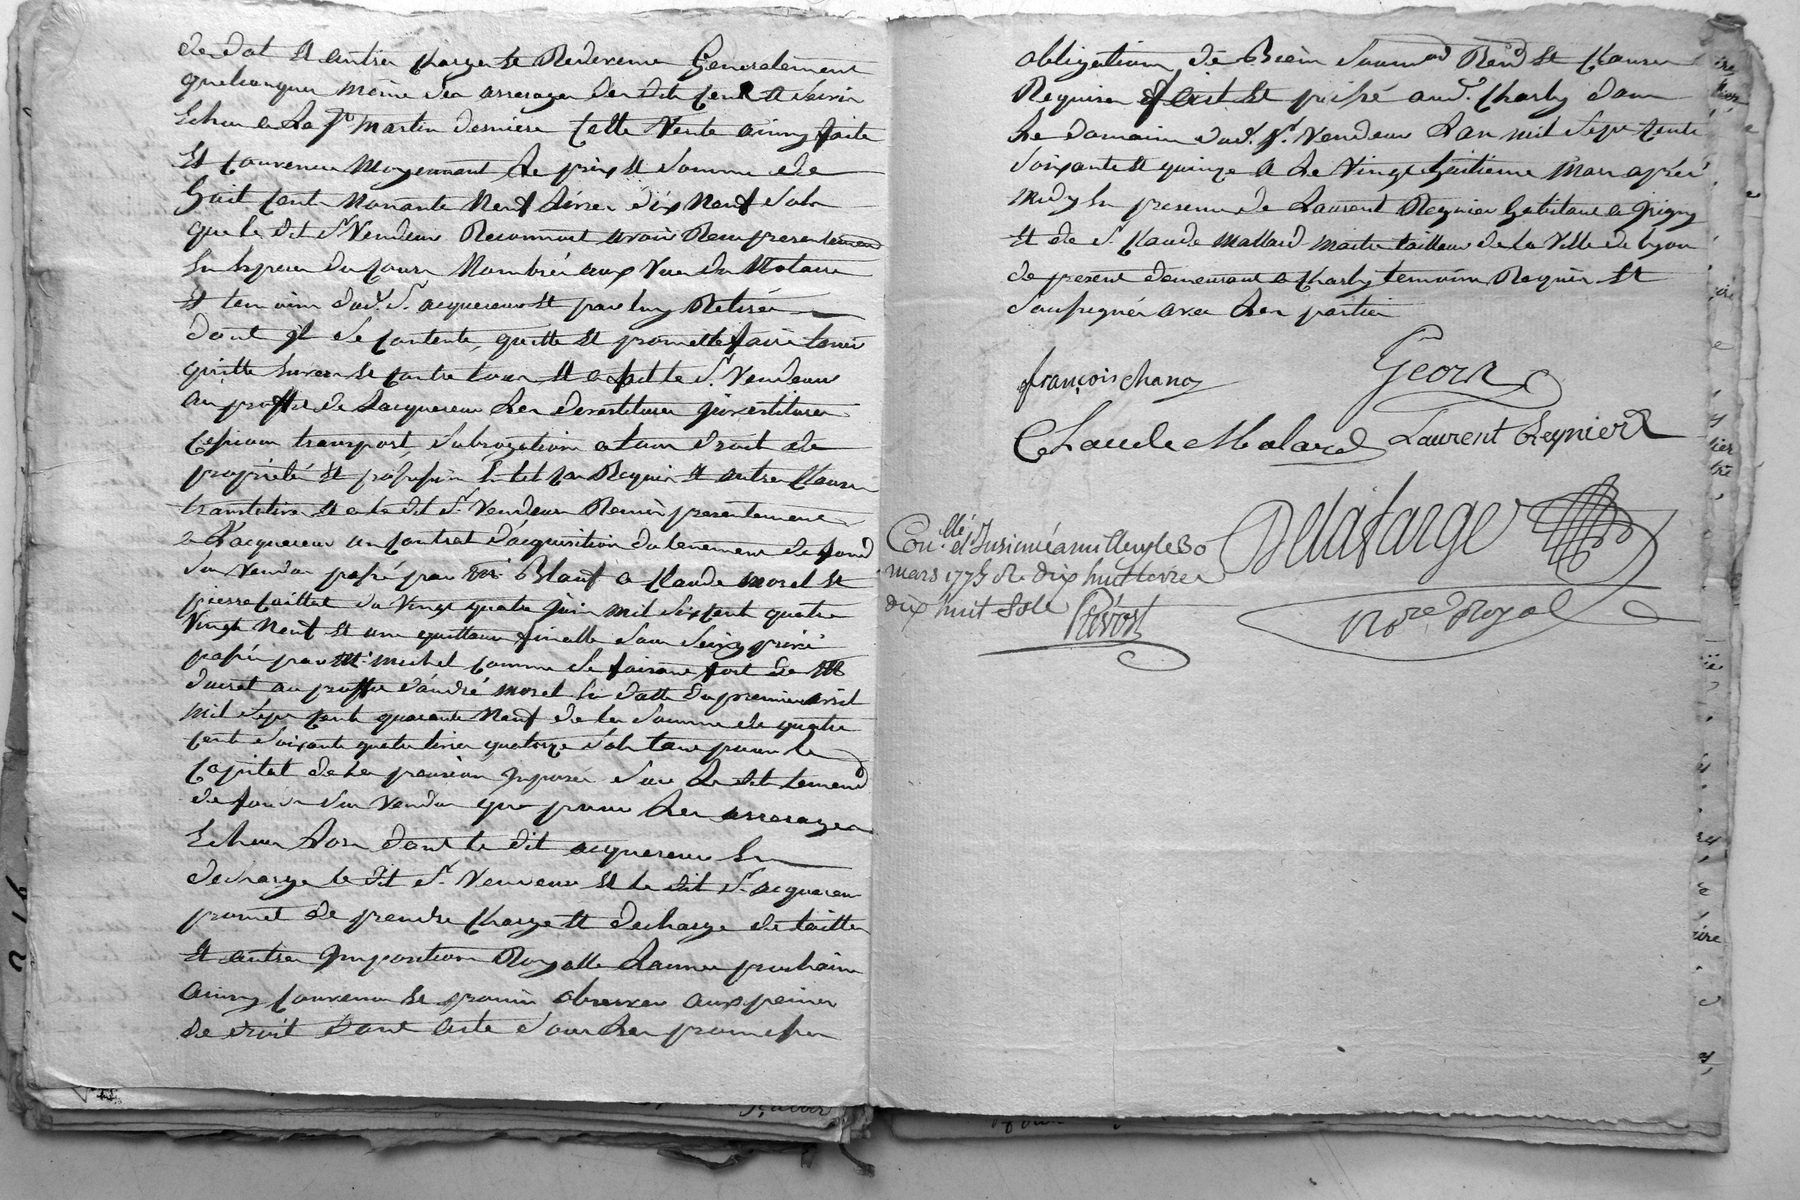 de dot et autres charges et Redevances Generalement
quelconques même des arrerages des dits cens et servis
Echus a La st Martin derniere Cette Vente ainsy faite
Et convenue Moyennant Le prix et somme de
huit cents Nonante Neuf Livres dix Neuf sols
que le dit sr Vendeur Reconnoit avoir Recu presentement
En Especes du cours Nombrées aux Vues du Notaire
et temoins dud. sr. acquereur et par luy Retirées
dont Il se contente, quitte et promet faire tenir
quitte Envers et contre tous et a fait le sr. Vendeur
au proffit de Lacquereur Les devestitures Investitures
cession transport, subrogation a tous droits de
proprieté et possession En tel cas Requis et autres clauses
translatives et a le dit sr. Vendeur Remis presentement
a L'acquereur un contrat d'acquisition du tenement de fond
sus Vendu passé par Me Blanf a Claude morel et
pierre Caillat du Vingt quatre Juin mil six cent quatre
Vingt Neuf et une quittance finalle sous seing privé
passée par Mr michel comme se faisant fort de Mr
ducret au proffit d'andré morel En datte du premier avril
mil sept cent quarante Neuf de la somme de quatre
cents soixante quatre livres quatorze sols tant pour le
Capital de La pension Imposée sur Le dit tenement
de fonds sus Vendus que pour Les arrerages
Echus Lors dont le dit acquereur En
decharge le dit sr. Vendeur et le dit sr. acquereur
promet de prendre charge et decharge de tailles
et autres Impositions Royalles Lannée prochaine
ainsy convenu et promis observer aux peines
de droit dont acte sous Les promesses
obligations de Biens soumons Renons et clauses
Requises fait et passé aud. Charly dans
Le domaine dud. sr. Vendeur L'an mil sept cents
soixante et quinze et Le Vingt huitieme Mars après
midy En presence de Laurent Reynier habitant a Irigny
et de sr. Claude Mallard maitre tailleur de la Ville de Lyon
de present demeurant a Charly temoins Requis et
soussignés avec Les parties
françois chanas
Georg
Claude Malard Laurent Reynier
Coll.e et Insinué a milleryle 30
mars 1775 Re dix huit livres
dix huit sols Prévost
Delafarge
Nore Royal